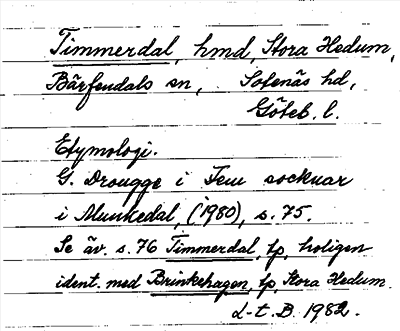 Timmerdal, hmd, Stora Hedum,
Bärfendals sn, Sotenäs hd,
Göteb. l.
Etymologi.
G. Drougge i Fem socknar
i Munkedal, (1980), s. 75.
Se äv. s. 76 Timmerdal, tp, troligen
ident. med Brinkehagen, tp, Stora Hedum.
L-t. B. 1982.